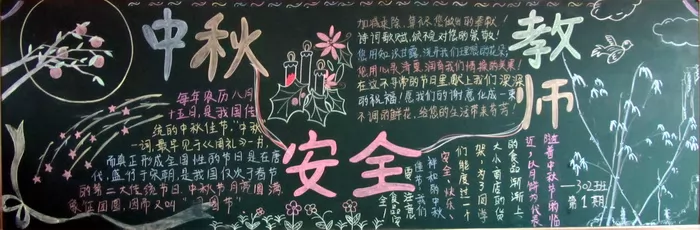 中秋
每年农历八月
十五日,是我国传
统的中秋佳节,“中秋
一词,最早见于《周礼》一书,
而真正形成全国性的节日是在唐
代,盛行于宋朝,是我国仅次于春节
的第二大传统节日,中秋节月亮圆满,
象征团圆,因而又叫“团圆节”
安全
教师
加减乘除,算不尽您做出的奉献!
诗词歌赋,颂不完对您的崇敬!
您用知识甘露,浇开我们理想的花朵,
您用心灵清泉,润育我们情操的美果!
在这不寻常的节日里,献上我们深深
的祝福!愿我们的谢意化成一束
不凋的鲜花,给您的生活带来芬芳!
随着中秋节的临
近,以月饼为代表
的食品渐渐上
大小商店的货
架,为了同学
们能度过一个
安全、快乐、
祥和的中秋
佳节,我们
要注意
食品安
全!
302班
第1期